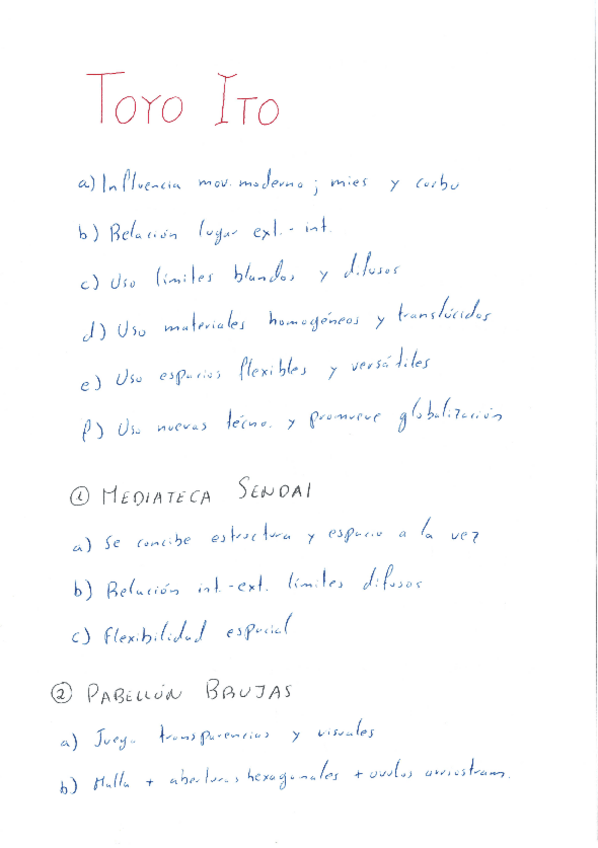 TOYO ITO
a) Influencia mov. moderno ; mies y corbu
b) Relación lugar ext. - int.
c) Uso límites blandos y difusos
d) Uso materiales homogéneos y translúcidos
e) Uso espacios flexibles y versátiles
f) Uso nuevas técno. y promueve globalización
① MEDIATECA SENDAI
a) Se concibe estructura y espacio a la vez
b) Relación int.-ext. límites difusos
c) Flexibilidad espacial
② PABELLÓN BRUJAS
a) Juego transparencias y visuales
b) Malla + aberturas hexagonales + óvalos arriostram.